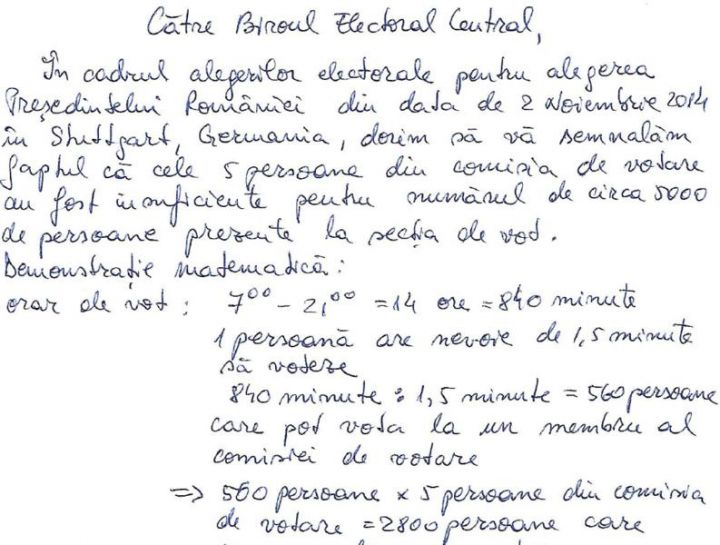 Către Biroul Electoral Central,
În cadrul alegerilor electorale pentru alegerea
Președintelui României din data de 2 Noiembrie 2014
în Stuttgart, Germania, dorim să vă semnalăm
faptul că cele 5 persoane din comisia de votare
au fost insuficiente pentru numărul de circa 5000
de persoane prezente la secția de vot.
Demonstrație matematică:
orar de vot : 7⁰⁰ - 21⁰⁰ = 14 ore = 840 minute
1 persoană are nevoie de 1,5 minute
să voteze
840 minute : 1,5 minute = 560 persoane
care pot vota la un membru al
comisiei de votare
=> 560 persoane x 5 persoane din comisia
de votare = 2800 persoane care